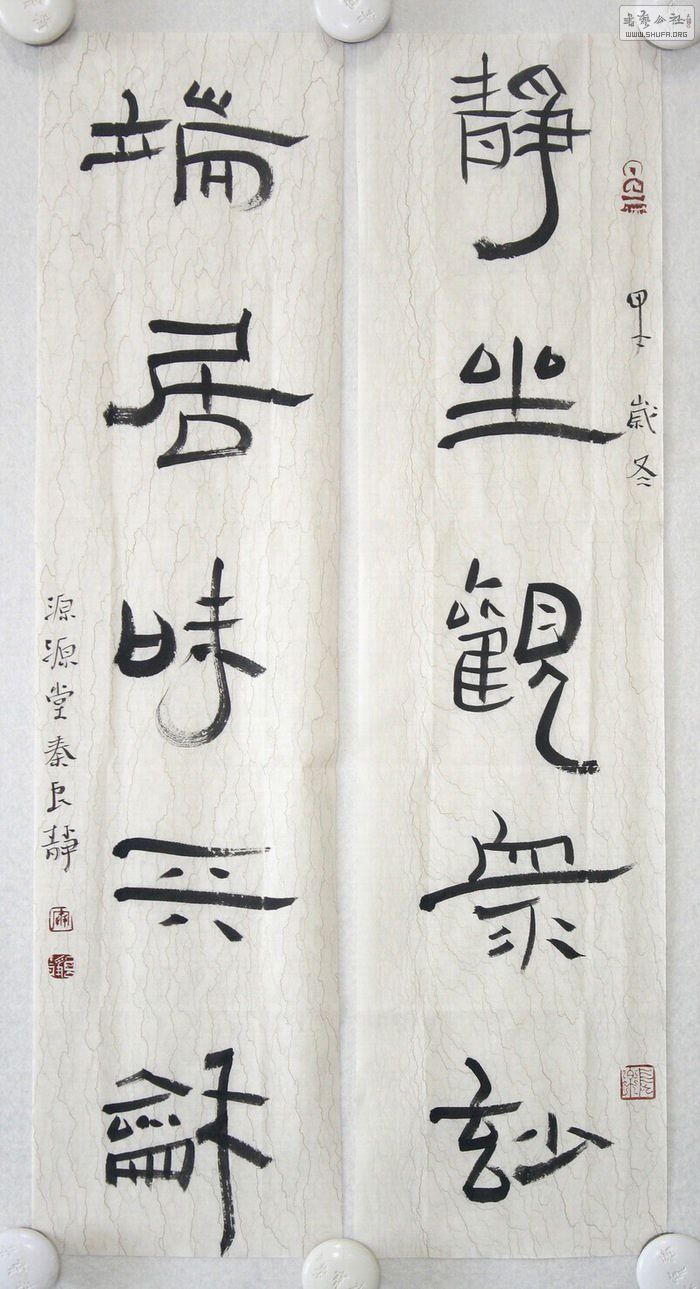 書藝公社
WWW.SHUFA.ORG
甲午歲冬
靜坐觀衆玅
端居味天龢
源源堂秦良靜